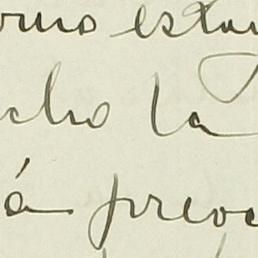 orno estan
cho la
á preoc